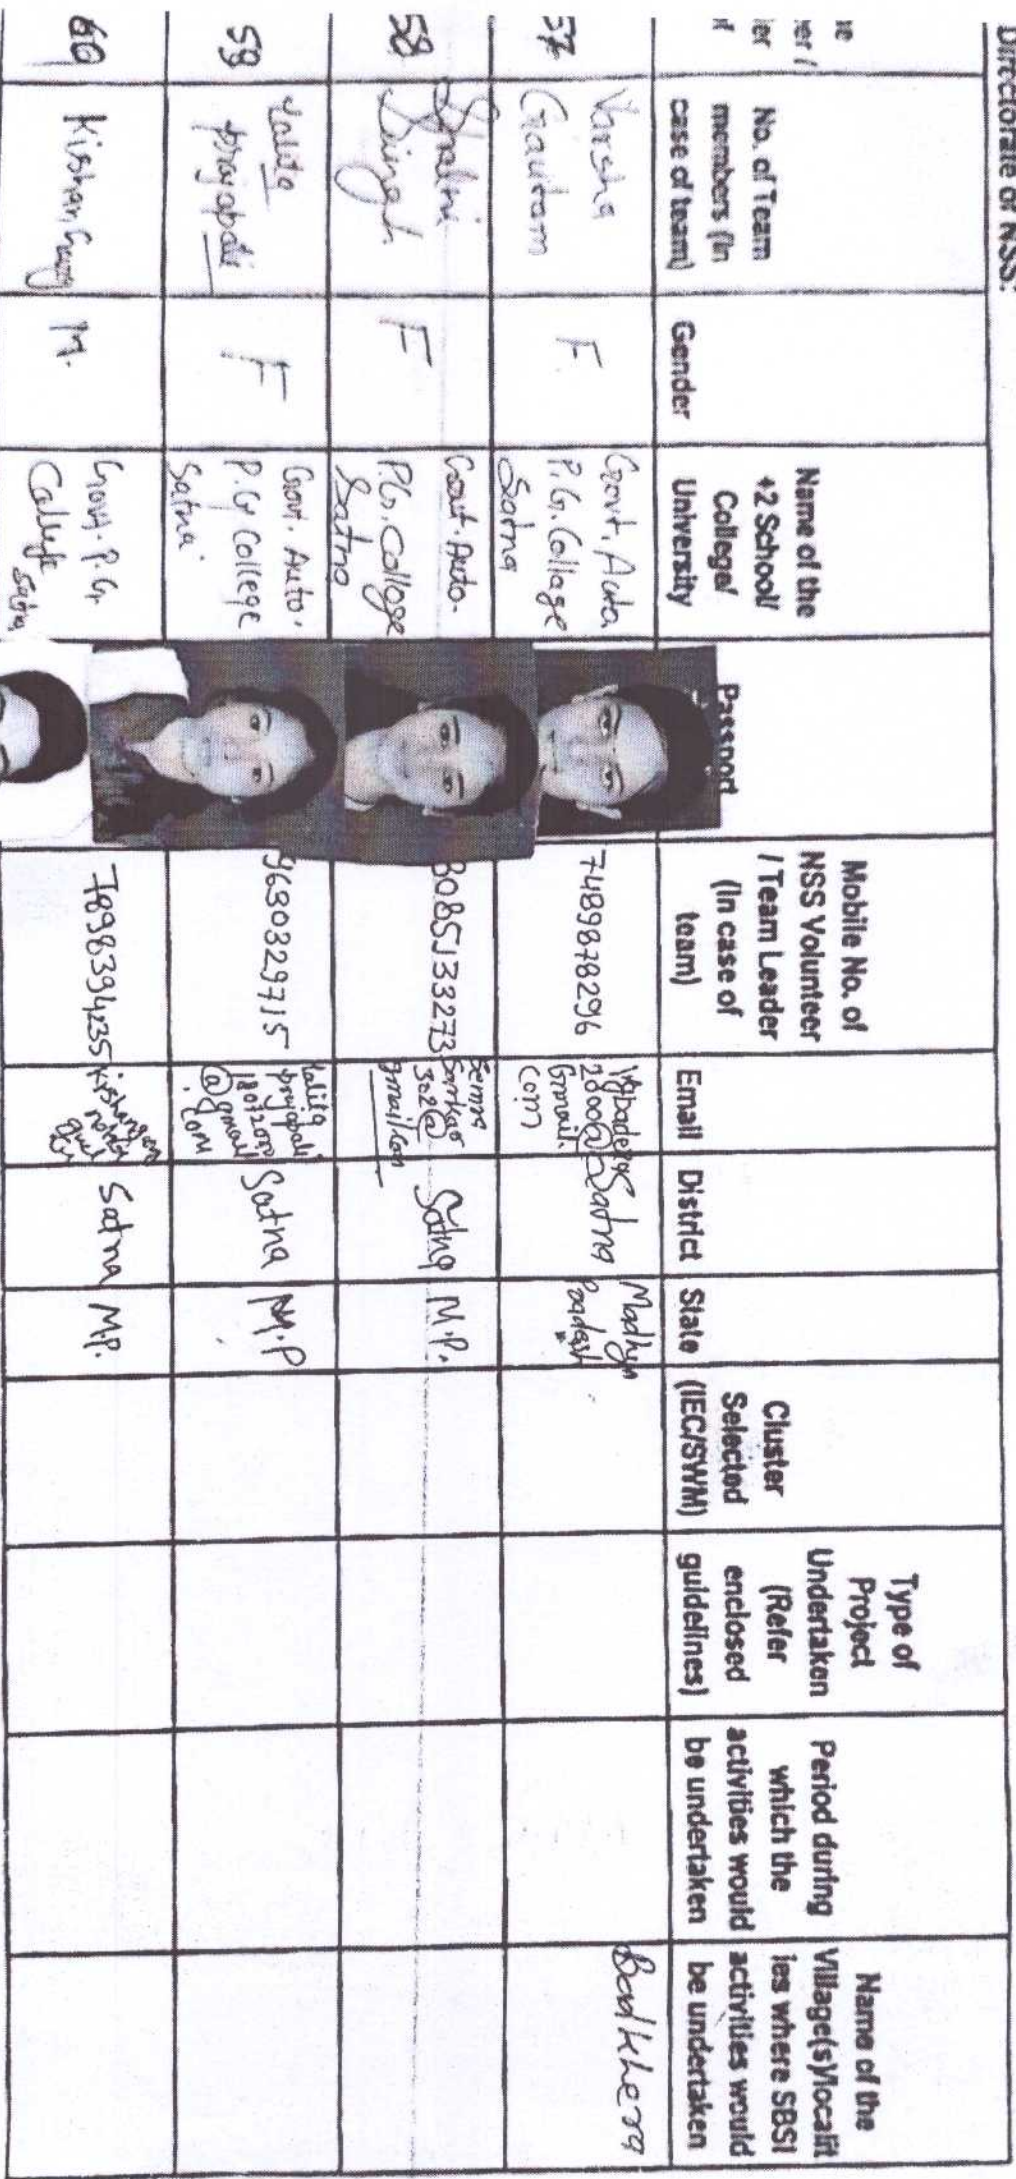 Directorate of NSS.
No. of Team
members (In
case of team)
Gender
Name of the
+2 School/
College/
University
Passport
Mobile No. of
NSS Volunteer
/ Team Leader
(In case of
team)
Email
District
State
Cluster
Selected
(IEC/SWM)
Type of
Project
Undertaken
(Refer
enclosed
guidelines)
Period during
which the
activities would
be undertaken
Name of the
Village(s)/localit
ies where SBSI
activities would
be undertaken
57
Varsha
Gautam
F
Govt. Auto
P.G. Collage
Satna
7489878296
2000@
Gmail.
com
Satna
Madhya
Badkhera
58
Shalini
Singh
F
Govt. Auto.
P.G. College
Satna
8085133273
302@
gmail.com
Satna
M.P.
59
Lalita
prajapati
F
Govt. Auto.
P.G College
Satna
9630329715
Lalita
prajapati
@gmail
.com
Satna
M.P
60
Kishan
M.
Govt. P.G.
College
Satna
7898394235
Satna
M.P.